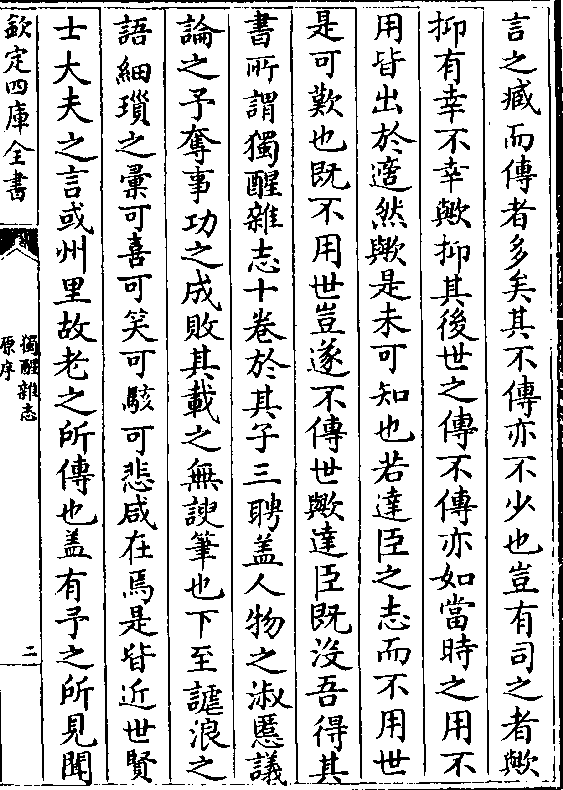 言之臧而傳者多矣其不傳亦不少也豈有司之者歟
抑有幸不幸歟抑其後世之傳不傳亦如當時之用不
用皆出於適然歟是未可知也若達臣之志而不用世
是可歎也既不用世豈遂不傳世歟達臣既沒吾得其
書所謂獨醒雜志十卷於其子三聘盖人物之淑慝議
論之予奪事功之成敗其載之無諛筆也下至謔浪之
語細瑣之彚可喜可笑可駭可悲咸在焉是皆近世賢
士大夫之言或州里故老之所傳也盖有予之所見聞
欽定四庫全書
獨醒雜志
原序
二